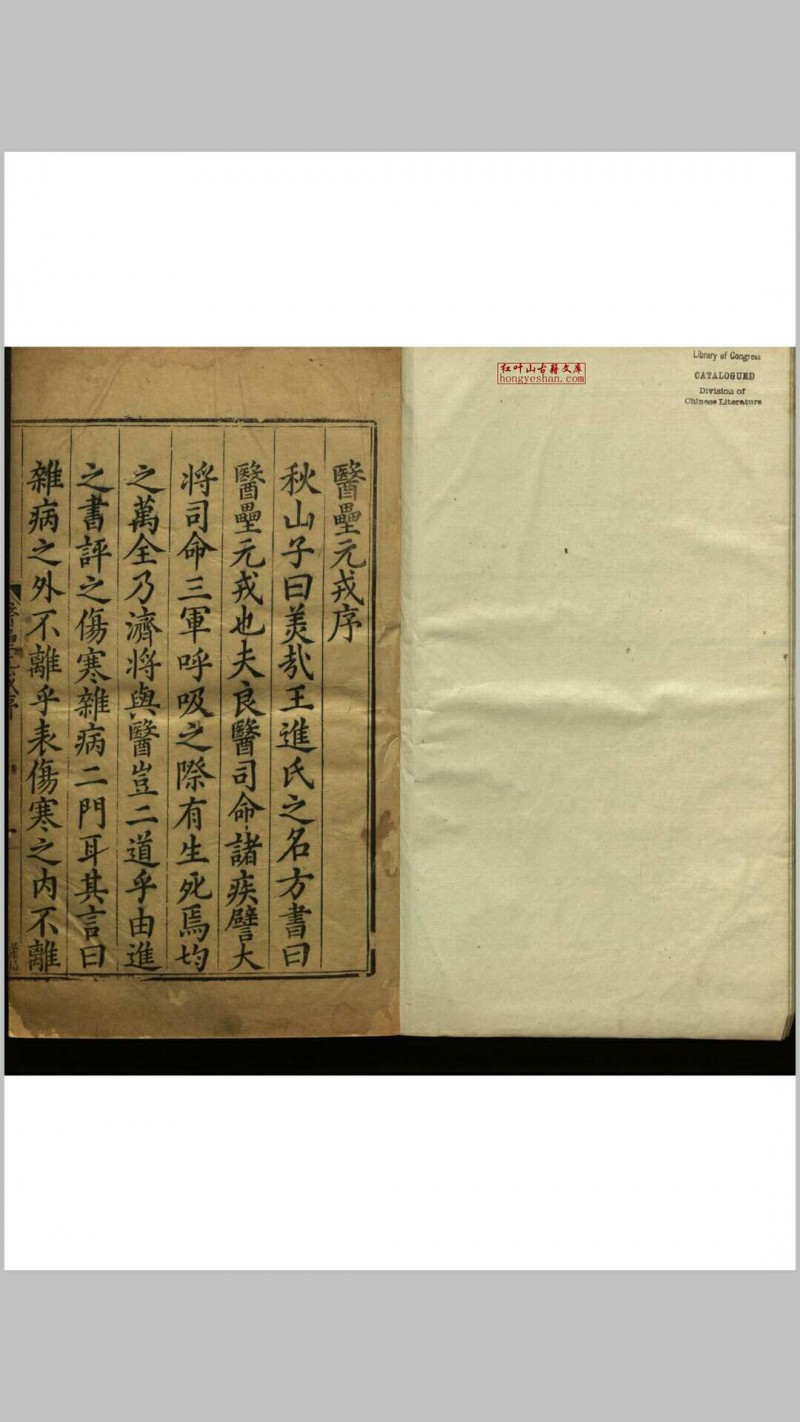 醫壘元戎序
秋山子曰美哉王進氏之名方書曰
醫壘元戎也夫良醫司命諸疾譬大
将司命三軍呼吸之際有生死焉均
之萬全乃濟将與醫豈二道乎由進
之書評之傷寒雜病二門耳其言曰
雜病之外不離乎表傷寒之内不離
红叶山古籍文库
hongyeshan.com
Library of Congress
CATALOGUED
Division of
Chinese Literature